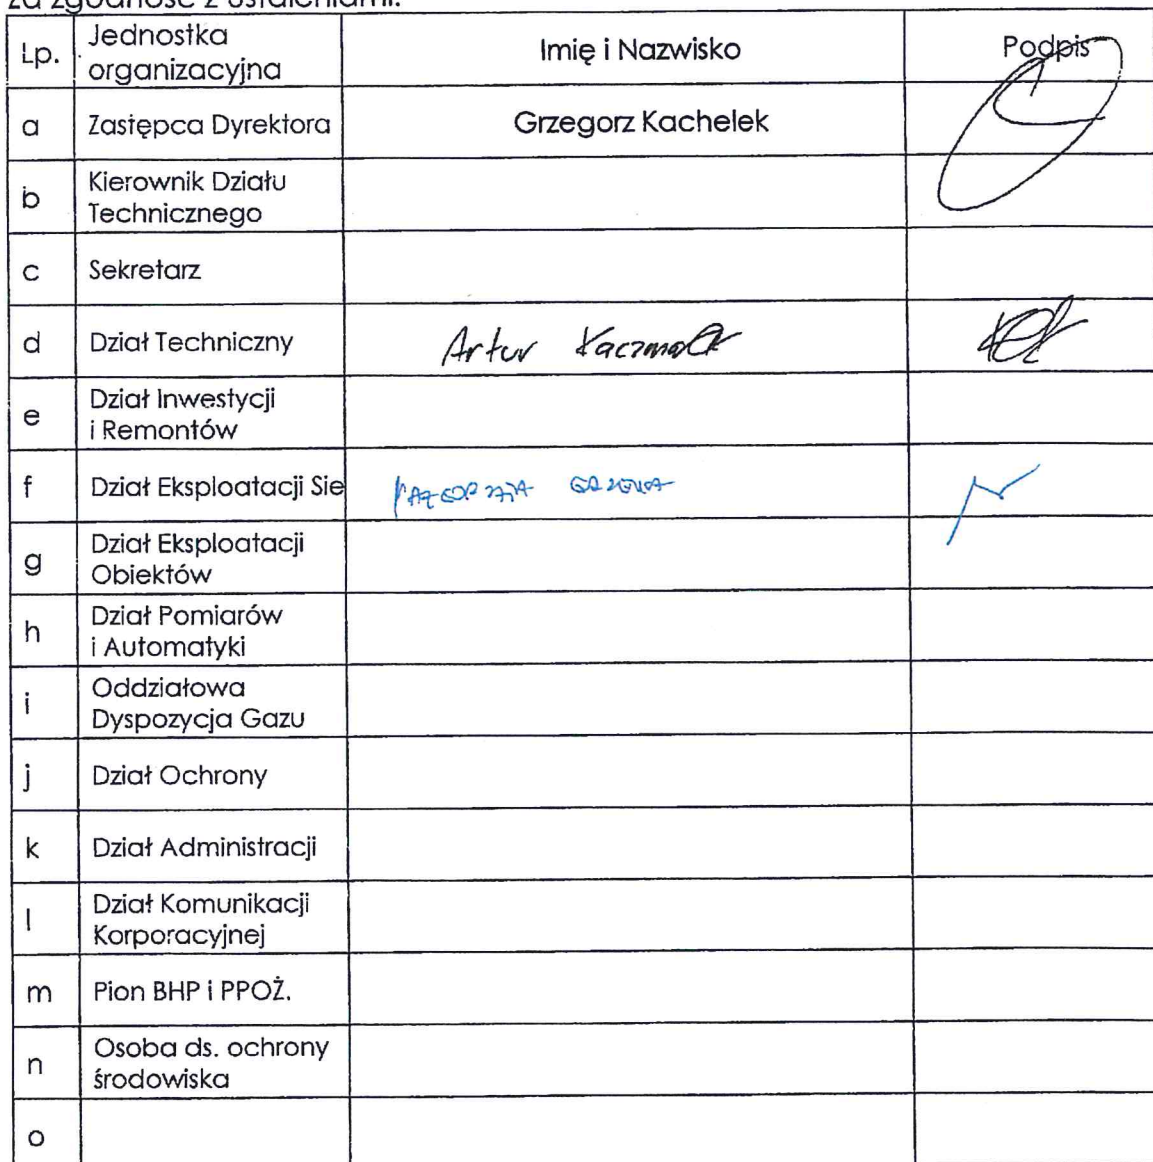 za zgodność z ustaleniami:
Lp. Jednostka organizacyjna Imię i Nazwisko Podpis
a Zastępca Dyrektora Grzegorz Kachelek
b Kierownik Działu Technicznego
c Sekretarz
d Dział Techniczny Artur Kaczmarek
e Dział Inwestycji i Remontów
f Dział Eksploatacji Sie
g Dział Eksploatacji Obiektów
h Dział Pomiarów i Automatyki
i Oddziałowa Dyspozycja Gazu
j Dział Ochrony
k Dział Administracji
l Dział Komunikacji Korporacyjnej
m Pion BHP i PPOŻ.
n Osoba ds. ochrony środowiska
o